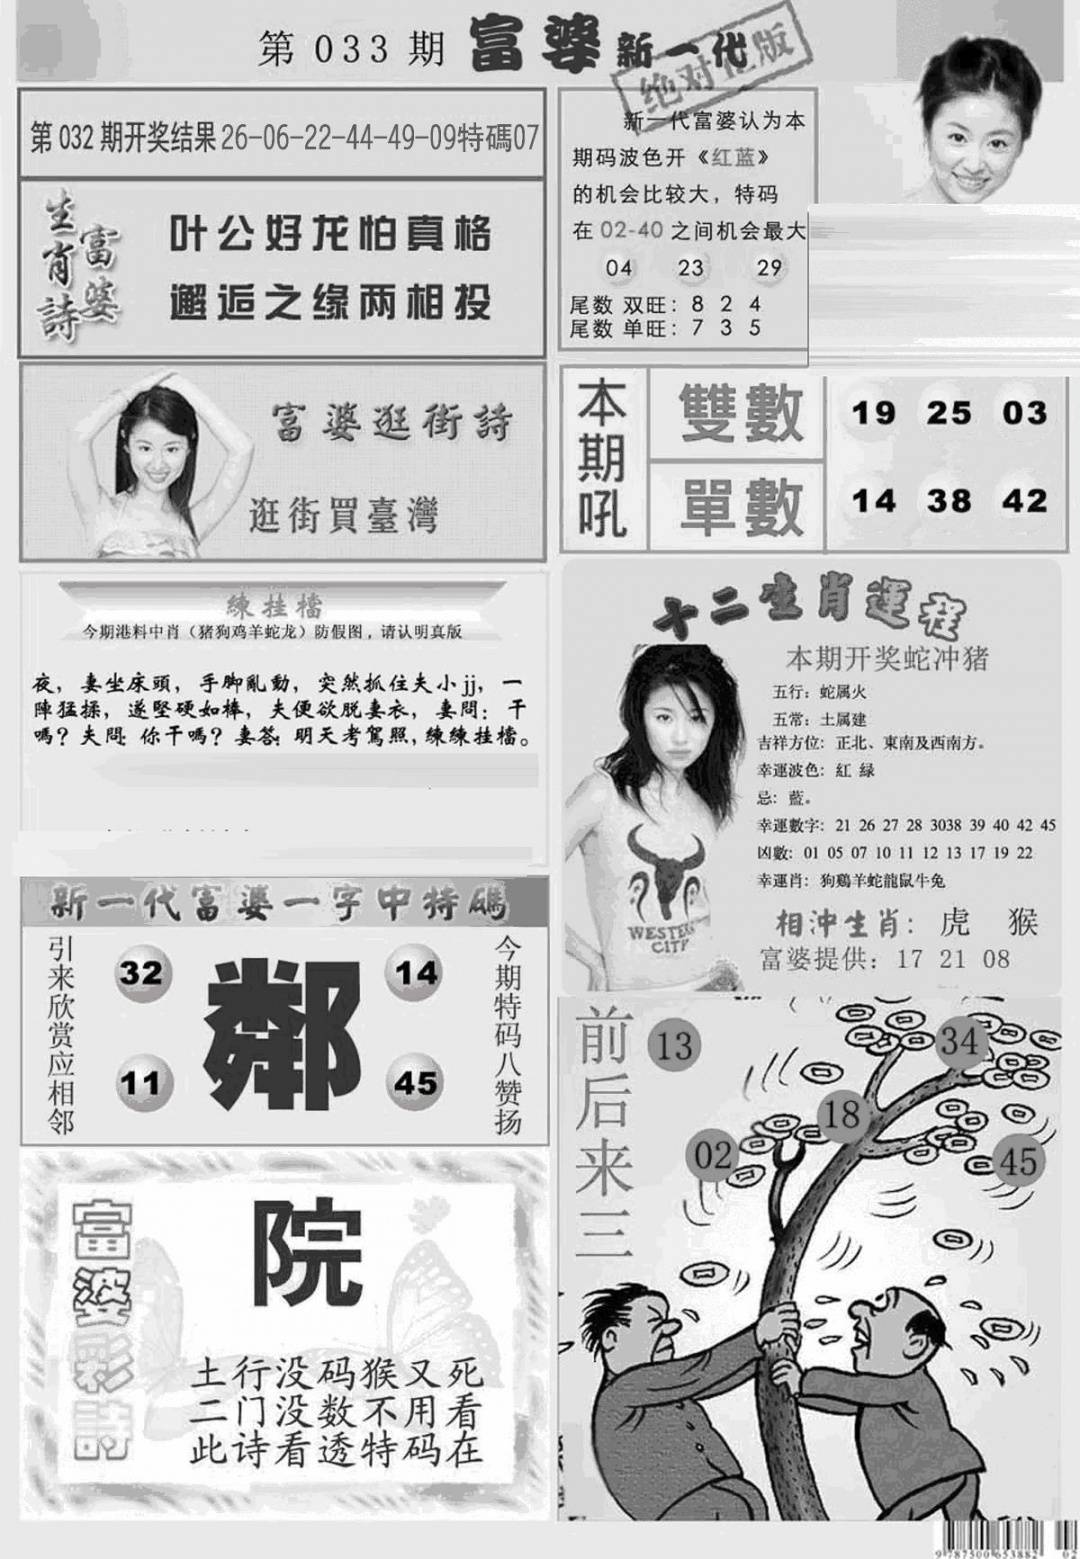 第 033 期 富婆 新一代
绝对正版
第 032 期开奖结果 26-06-22-44-49-09特碼07
生肖詩
富婆
叶公好龙怕真格
邂逅之缘两相投
新一代富婆认为本
期码波色开《红蓝》
的机会比较大，特码
在 02-40 之间机会最大
04 23 29
尾数 双旺：8 2 4
尾数 单旺：7 3 5
富婆逛街詩
逛街買臺灣
本期吼
雙數 19 25 03
單數 14 38 42
練挂檔
今期港料中肖（猪狗鸡羊蛇龙）防假图，请认明真版
夜，妻坐床頭，手脚亂動，突然抓住夫小jj，一
陣猛揉，遂堅硬如棒，夫便欲脱妻衣，妻問：干
嗎？夫問 你干嗎？妻答：明天考駕照，練練挂檔。
十二生肖運程
本期开奖蛇冲猪
五行：蛇属火
五常：土属建
吉祥方位：正北、東南及西南方。
幸運波色：紅 绿
忌：藍。
幸運數字：21 26 27 28 3038 39 40 42 45
凶數：01 05 07 10 11 12 13 17 19 22
幸運肖：狗鷄羊蛇龍鼠牛兔
相沖生肖：虎 猴
富婆提供：17 21 08
WESTERN
CITY
新一代富婆一字中特碼
引来欣赏应相邻
32 14
鄰
11 45
今期特码八赞扬
富婆彩詩
院
土行没码猴又死
二门没数不用看
此诗看透特码在
前后来三
13
34
18
02
45
9 787500 653882
02